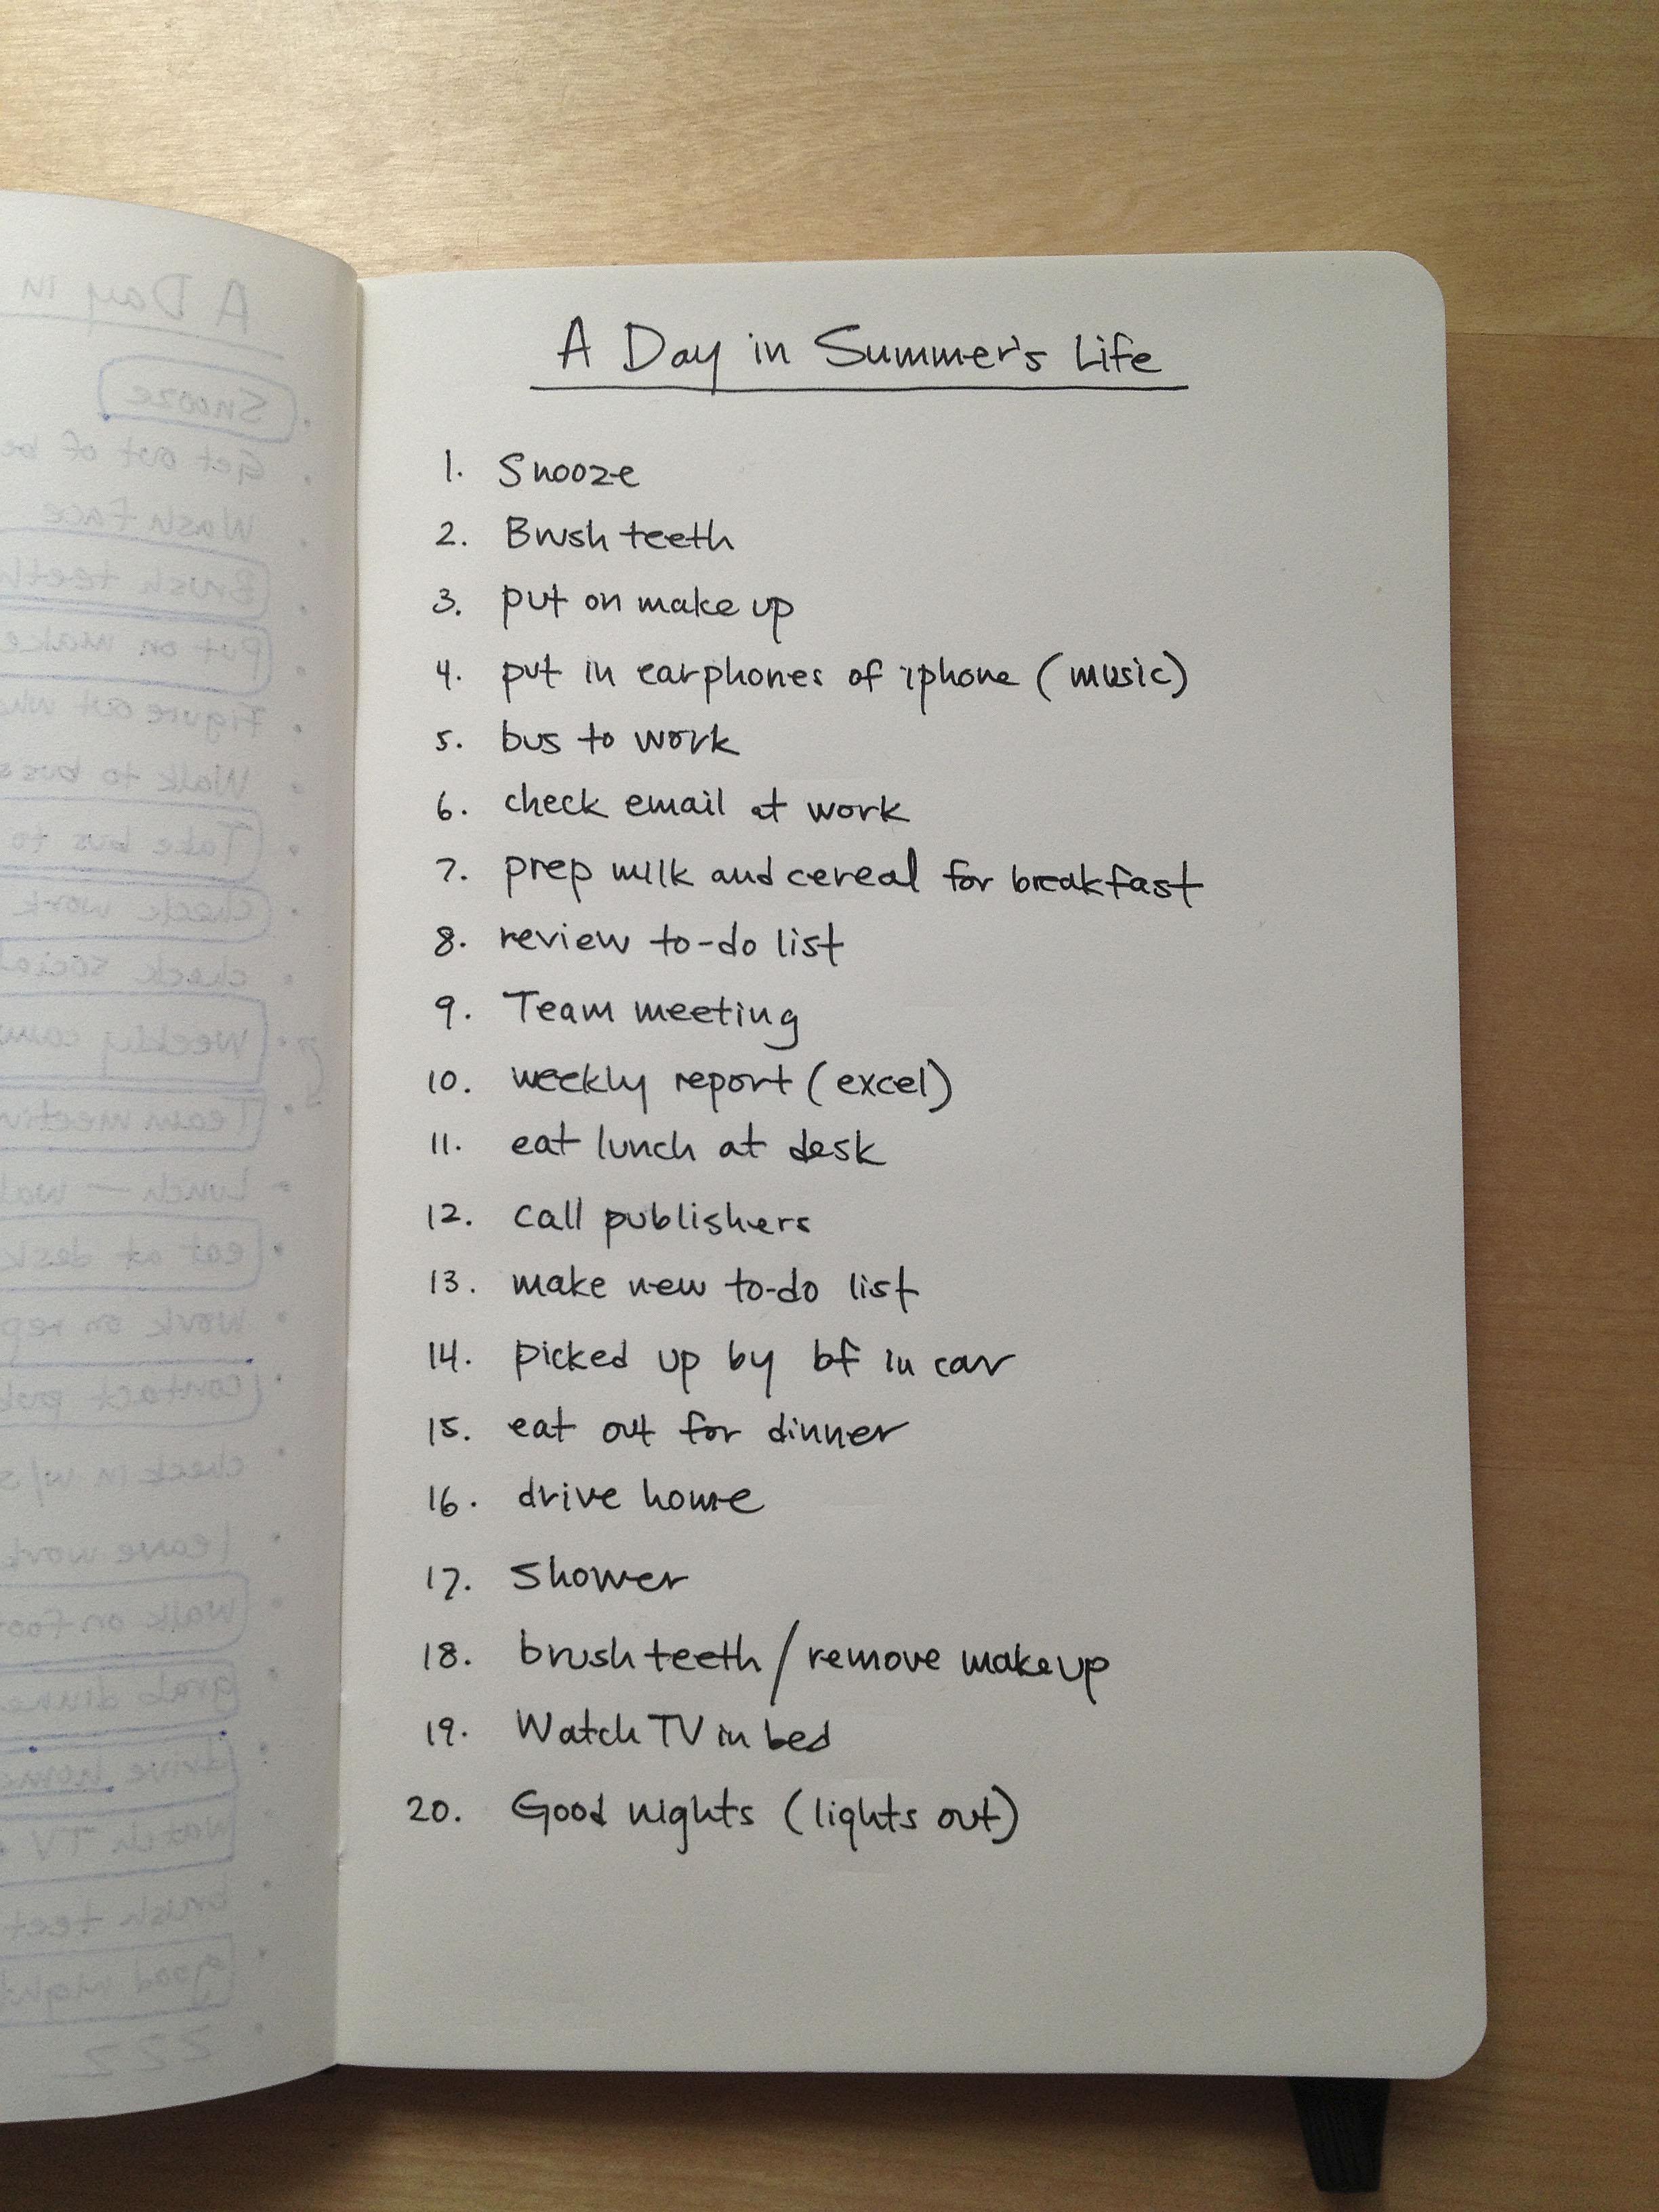 A Day in Summer's Life
1. Snooze
2. Brush teeth
3. put on make up
4. put in earphones of iphone (music)
5. bus to work
6. check email at work
7. prep milk and cereal for breakfast
8. review to-do list
9. Team meeting
10. weekly report (excel)
11. eat lunch at desk
12. call publishers
13. make new to-do list
14. picked up by bf in car
15. eat out for dinner
16. drive home
17. shower
18. brush teeth / remove makeup
19. Watch TV in bed
20. Good nights (lights out)